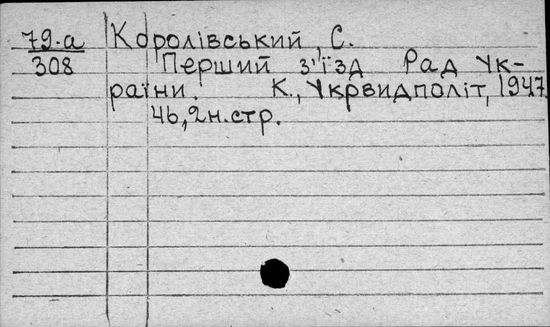 79.а Королівський, С.
308 Перший з'їзд Рад Ук-
раїни. К., Укрвидполіт, 1947.
46, 2н.стр.